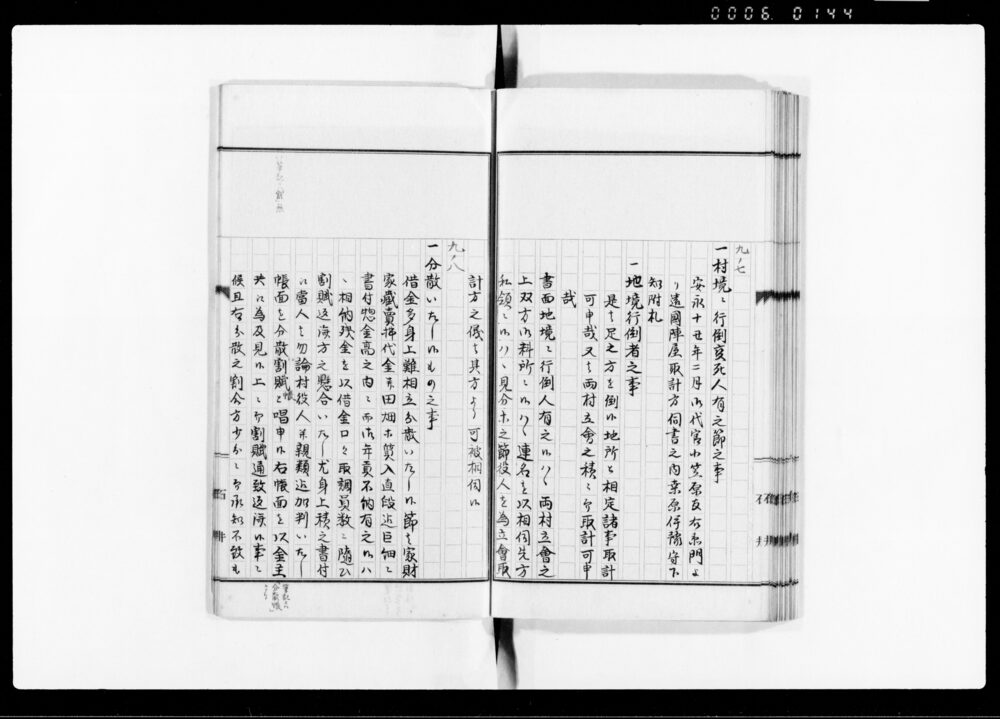 0006 0144
九ノ七
一村境ニ行倒変死人有之節之事
安永十丑年二月御代官小笠原友右衛門よ
り遠國陣屋取計方伺書之内桑原伊豫守下
知附札
一地境行倒者之事
是ハ足之方を倒候地所と相定諸事取計
可申哉又ハ両村立會之積ニ而取計可申
哉
書面地境ニ行倒人有之候ハヽ両村立會之
上双方御料所ニ候ハヽ連名を以相伺先方
私領ニ候ハヽ見分等之節役人を為立會取
計方之儀ハ其方より可被相伺候
九ノ八
一分散いたし候もの之事
借金多身上難相立分散いたし候節ハ家財
家蔵賣拂代金并田畑等質入直段迄巨細ニ
書付惣金高之内ニ而御年貢不納有之候ハ
ヽ相納残金を以借金口々取調員数ニ随ひ
割賦返済方之懸合いたし尤身上積之書付
ニ當人ハ勿論村役人并親類迄加判いたし
帳面を分散割賦帳と唱申候右帳面を以金主
共江為及見候上ニ而割賦通致返済候事ニ
候且右分散之割合方少分ニ而承知不致も
筆記ニハ
分散帳
とあり